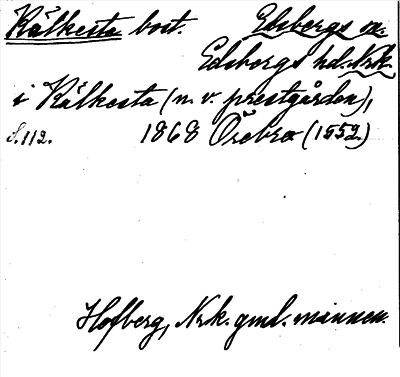 Kälkesta bost. Edsbergs sn.
Edsbergs hd. Nrk.
i Kälkesta (n. v. prestgården),
S. 112. 1868 Örebro (1552)
Hofberg, Nrk. gml. minnen.